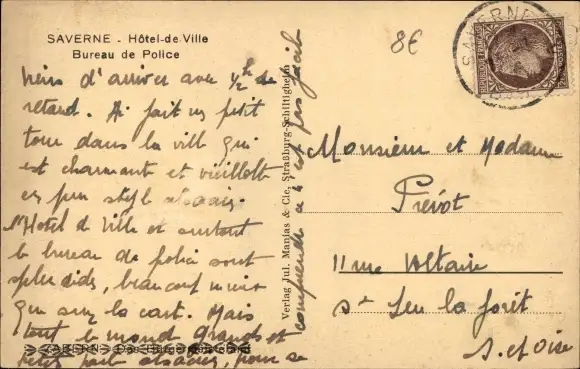 SAVERNE - Hôtel-de-Ville
Bureau de Police
8€
SAVERNE
Viens d'arriver avec ½ h de
retard. Ai fait un petit
tour dans la ville qui
est charmante et vieillotte
en pur style alsacien.
L'Hôtel de Ville et surtout
le bureau de police sont
splendides, beaucoup mieux
que sur la carte. Mais
tout le monde grands et
petits parle alsacien, pour se
comprendre ce n'est pas facile
Verlag Jul. Manias & Cie, Straßburg-Schiltigheim
Monsieur et Madame
Prévot
11 rue Voltaire
St Leu la forêt
S. et Oise
ZABERN